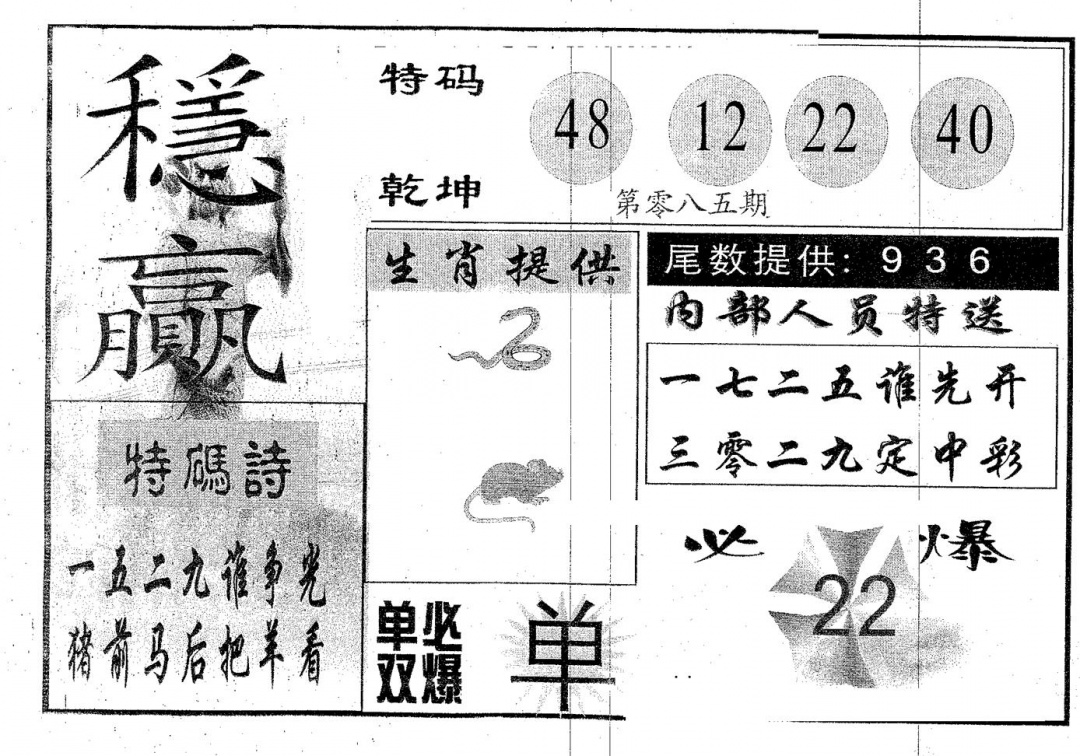 穩
贏
特码
乾坤
48 12 22 40
第零八五期
生肖提供
尾数提供: 9 3 6
内部人员特送
一七二五谁先开
三零二九定中彩
特碼詩
一五二九谁争光
猪前马后把羊看
单双
必爆
单
必爆
22